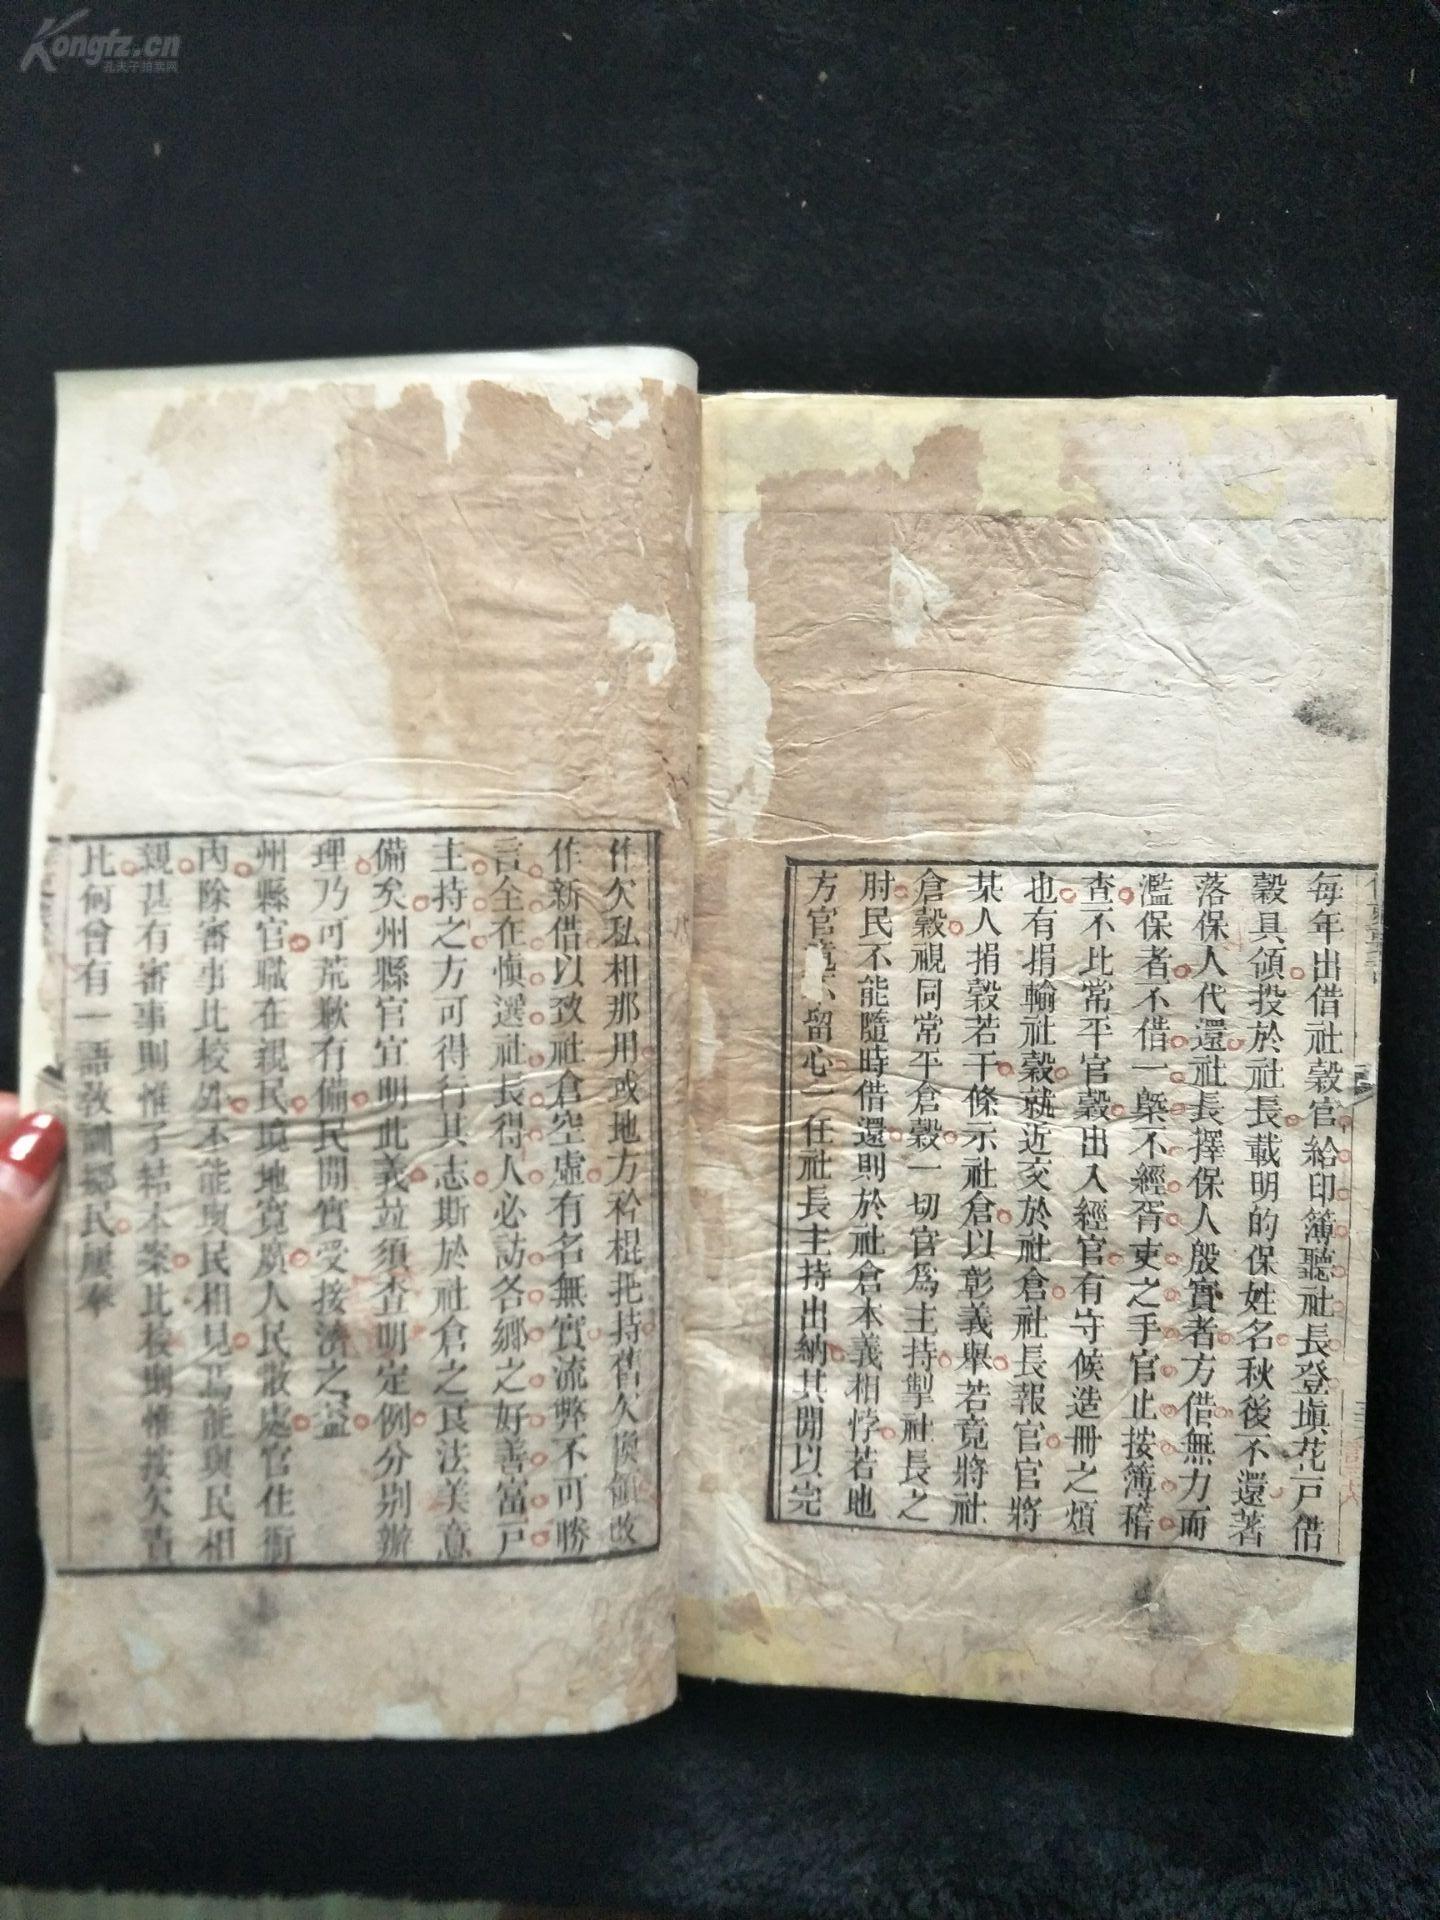 Kongfz.cn
孔夫子拍卖网
每年出借社穀官給印簿聽社長登塡花戸借
穀具領投於社長載明的保姓名秋後不還著
落保人代還社長擇保人殷實者方借無力而
濫保者不借一槩不經胥吏之手官止按簿稽
查不比常平官穀出入經官有守候造冊之煩
也有捐輸社穀就近交於社倉社長報官官將
某人捐穀若干條示社倉以彰義舉若竟將社
倉穀視同常平倉穀一切官爲主持掣社長之
肘民不能隨時借還則於社倉本義相悖若地
方官 留心一任社長主持出納其閒以完
作欠私相那用或地方衿棍把持舊欠換領改
作新借以致社倉空虛有名無實流弊不可勝
言全在愼選社長得人必訪各鄉之好善富戸
主持之方可得行其志斯於社倉之良法美意
備矣州縣官宜明此義竝須查明定例分別辦
理乃可荒歉有備民閒實受接濟之益
州縣官職在親民境地寬廣人民散處官住衙
內除審事比校外不能與民相見焉能與民相
親甚有審事則惟了結本案比核則惟按欠責
比何曾有一語敎訓鄉民 奉